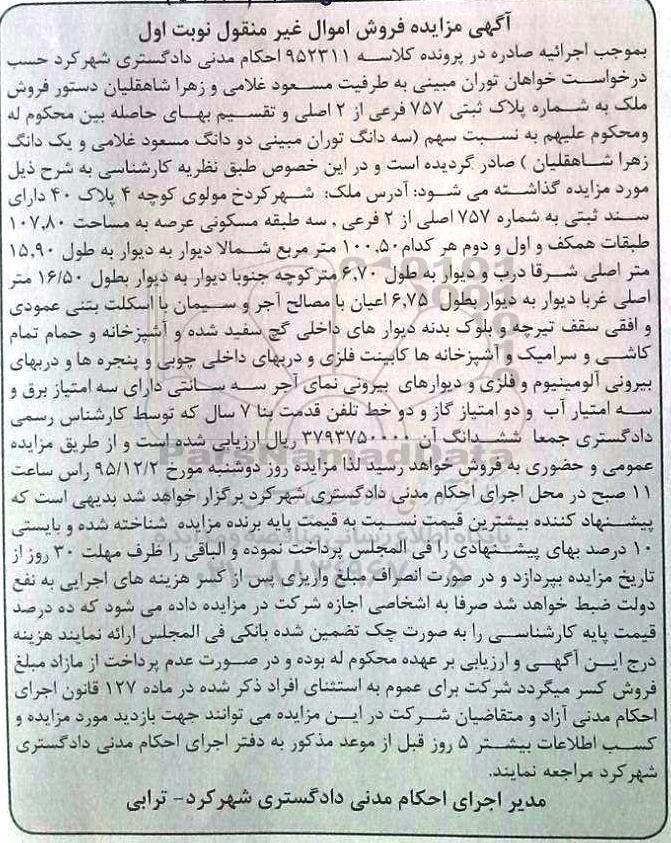 آگهی مزایده فروش اموال غیر منقول نوبت اول
بموجب اجرائیه صادره در پرونده کلاسه ۹۵۲۳۱۱ احکام مدنی دادگستری شهرکرد حسب
درخواست خواهان توران مبینی به طرفیت مسعود غلامی و زهرا شاهقلیان دستور فروش
ملک به شماره پلاک ثبتی ۷۵۷ فرعی از ۲ اصلی و تقسیم بهای حاصله بین محکوم له
ومحکوم علیهم به نسبت سهم (سه دانگ توران مبینی دو دانگ مسعود غلامی و یک دانگ
زهرا شاهقلیان ) صادر گردیده است و در این خصوص طبق نظریه کارشناسی به شرح ذیل
مورد مزایده گذاشته می شود: آدرس ملک: شهرکردخ مولوی کوچه ۴ پلاک ۴۰ دارای
سند ثبتی به شماره ۷۵۷ اصلی از ۲ فرعی , سه طبقه مسکونی عرصه به مساحت ۱۰۷,۸۰
طبقات همکف و اول و دوم هر کدام۱۰۰,۵۰ متر مربع شمالا دیوار به دیوار به طول ۱۵,۹۰
متر اصلی شرقا درب و دیوار به طول ۶,۷۰ مترکوچه جنوبا دیوار به دیوار بطول ۱۶/۵۰ متر
اصلی غربا دیوار به دیوار بطول ۶,۷۵ اعیان با مصالح آجر و سیمان با اسکلت بتنی عمودی
و افقی سقف تیرچه و بلوک بدنه دیوار های داخلی گچ سفید شده و آشپزخانه و حمام تمام
کاشی و سرامیک و آشپزخانه ها کابینت فلزی و دربهای داخلی چوبی و پنجره ها و دربهای
بیرونی آلومینیوم و فلزی و دیوارهای بیرونی نمای آجر سه سانتی دارای سه امتیاز برق و
سه امتیار آب و دو امتیاز گاز و دو خط تلفن قدمت بنا ۷ سال که توسط کارشناس رسمی
دادگستری جمعا ششدانگ آن ۳۷۹۳۷۵۰۰۰۰ ریال ارزیابی شده است و از طریق مزایده
عمومی و حضوری به فروش خواهد رسید لذا مزایده روز دوشنبه مورخ ۹۵/۱۲/۲ راس ساعت
۱۱ صبح در محل اجرای احکام مدنی دادگستری شهرکرد برگزار خواهد شد بدیهی است که
پیشنهاد کننده بیشترین قیمت نسبت به قیمت پایه برنده مزایده شناخته شده و بایستی
۱۰ درصد بهای پیشنهادی را فی المجلس پرداخت نموده و الباقی را ظرف مهلت ۳۰ روز از
تاریخ مزایده بپردازد و در صورت انصراف مبلغ واریزی پس از کسر هزینه های اجرایی به نفع
دولت ضبط خواهد شد صرفا به اشخاصی اجازه شرکت در مزایده داده می شود که ده درصد
قیمت پایه کارشناسی را به صورت چک تضمین شده بانکی فی المجلس ارائه نمایند هزینه
درج این آگهی و ارزیابی بر عهده محکوم له بوده و در صورت عدم پرداخت از مازاد مبلغ
فروش کسر میگردد شرکت برای عموم به استثنای افراد ذکر شده در ماده ۱۲۷ قانون اجرای
احکام مدنی آزاد و متقاضیان شرکت در این مزایده می توانند جهت بازدید مورد مزایده و
کسب اطلاعات بیشتر ۵ روز قبل از موعد مذکور به دفتر اجرای احکام مدنی دادگستری
شهرکرد مراجعه نمایند.
مدیر اجرای احکام مدنی دادگستری شهرکرد- ترابی